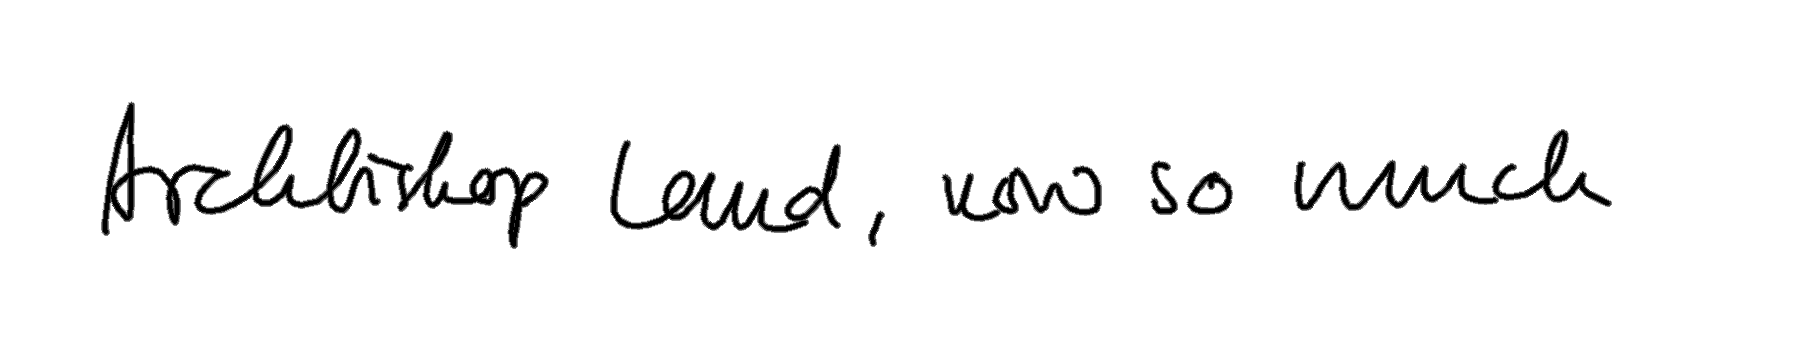 Archbishop Laud, now so much